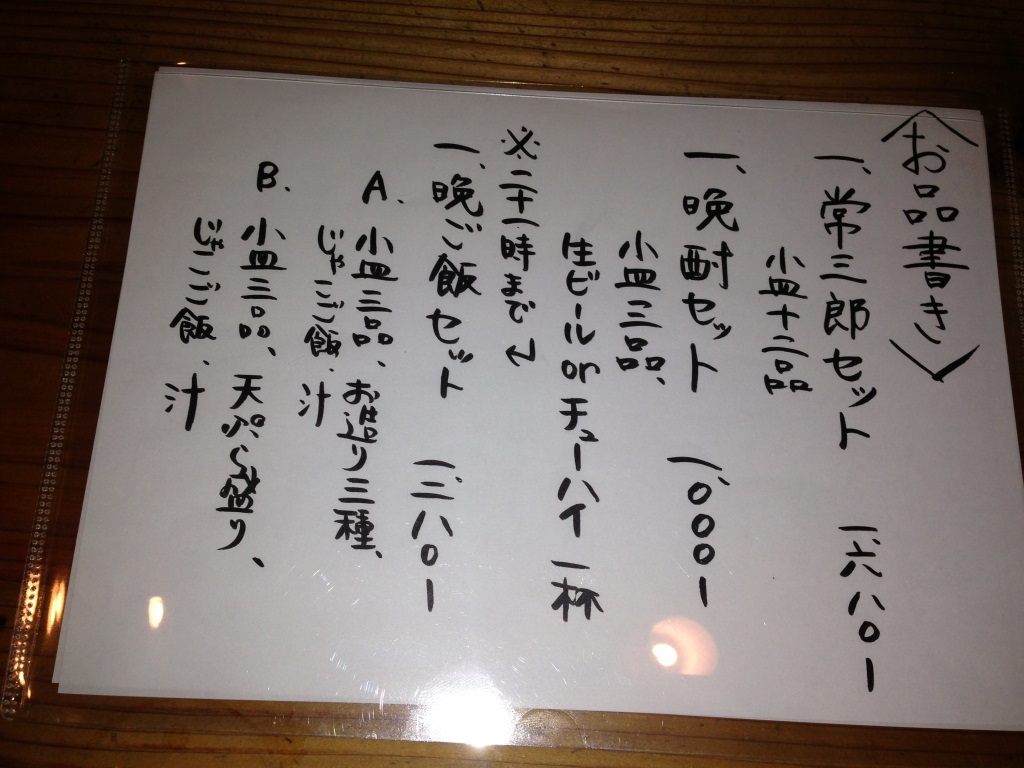 〈お品書き〉
一、常三郎セット 一、六八〇ー
小皿十二品
一、晩酌セット 一、〇〇〇ー
小皿三品、
生ビールorチューハイ 一杯
※二十一時まで↲
一、晩ご飯セット 一、二八〇ー
A. 小皿三品、お造り三種、
じゃこご飯、汁
B. 小皿三品、天ぷら盛り、
じゃこご飯、汁